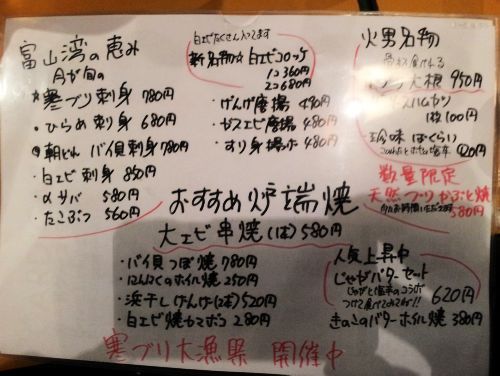 富山湾の恵み
今が旬の
☆寒ブリ刺身 780円
・ひらめ刺身 680円
朝どれ バイ貝刺身 780円
・白エビ刺身 850円
・〆サバ 580円
・たこぶつ 560円
白エビたくさん入ってます
新名物☆白エビコロッケ
1コ 360円
2コ 680円
・げんげ唐揚 490円
・ガスエビ唐揚 480円
・すり身揚 480円
火男名物
大根 950円
ハムカツ
1枚 100円
珍味 ばくらい
420円
数量限定
天然ブリかぶと焼
580円
おすすめ炉端焼
大エビ串焼(1本) 580円
・バイ貝つぼ焼 780円
・にんにくのホイル焼 250円
・浜干しげんげ(2本) 520円
・白エビ焼カマボコ 280円
人気上昇中
じゃがバターセット
じゃがと塩辛のコラボ
つけて食べてみて!!
620円
きのこのバターホイル焼 380円
寒ブリ大漁祭 開催中